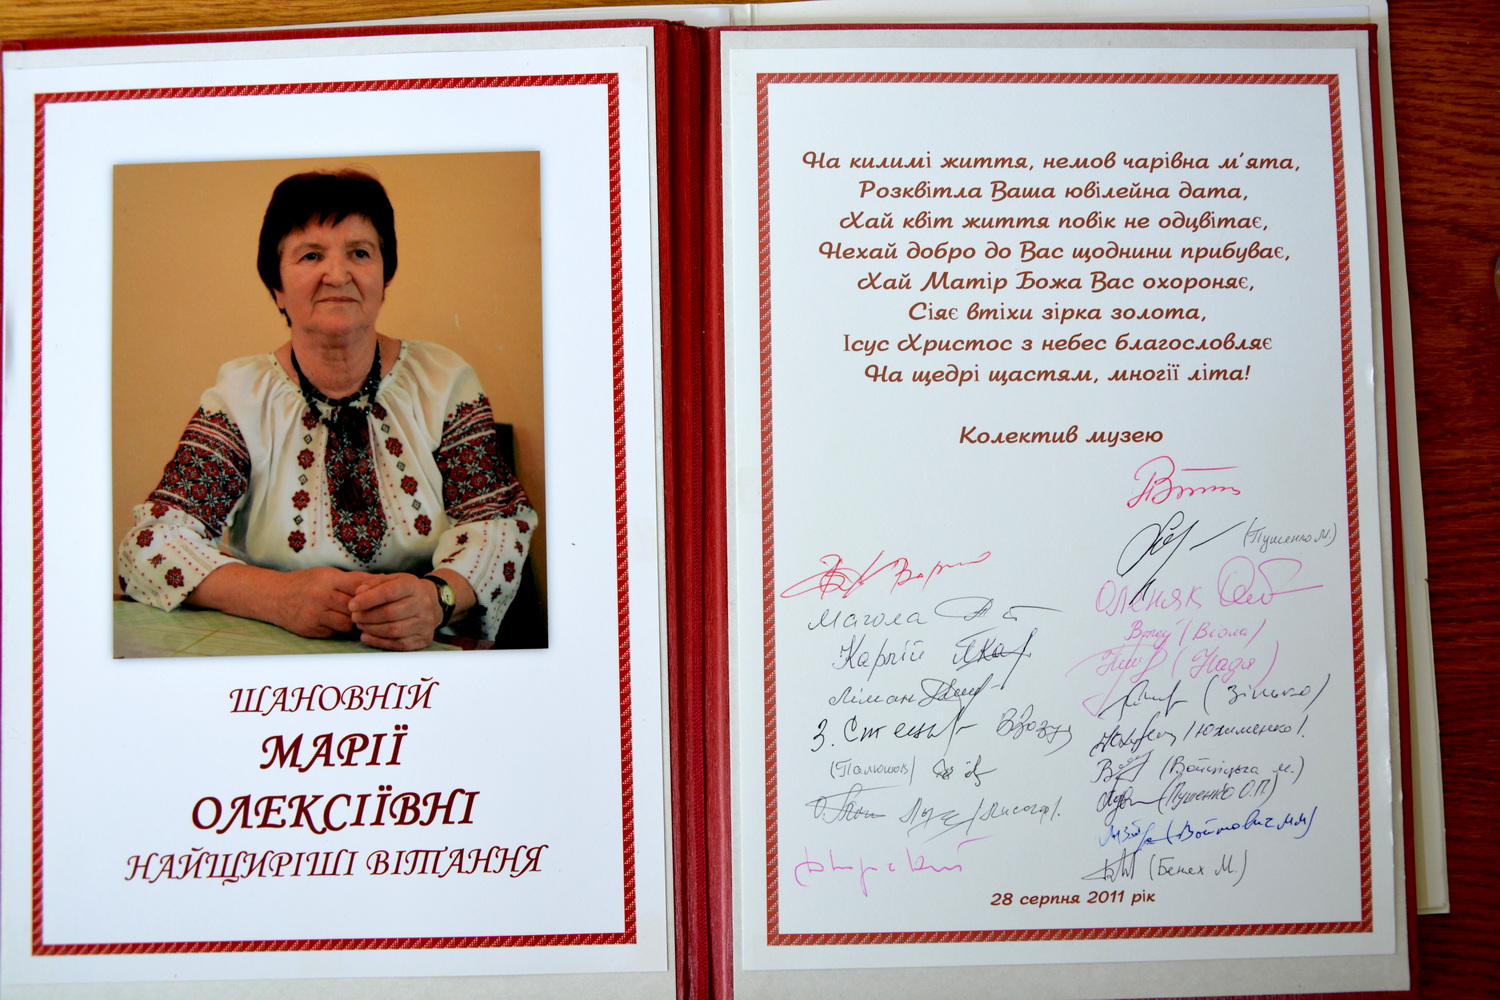 ШАНОВНІЙ
МАРІЇ
ОЛЕКСІЇВНІ
НАЙЩИРІШІ ВІТАННЯ
На килимі життя, немов чарівна м'ята,
Розквітла Ваша ювілейна дата,
Хай квіт життя повік не одцвітає,
Нехай добро до Вас щоднини прибуває,
Хай Матір Божа Вас охороняє,
Сіяє втіхи зірка золота,
Ісус Христос з небес благословляє
На щедрі щастям, многії літа!
Колектив музею
Магола
Карпій
Ліман
(Пушенко М.)
Оленяк
(Віола)
(Надя)
(Зінько)
/Юхименко/.
(Войніцька М.)
(Пушенко О.П.)
(Войтович М.М.)
(Бенех М.)
28 серпня 2011 рік